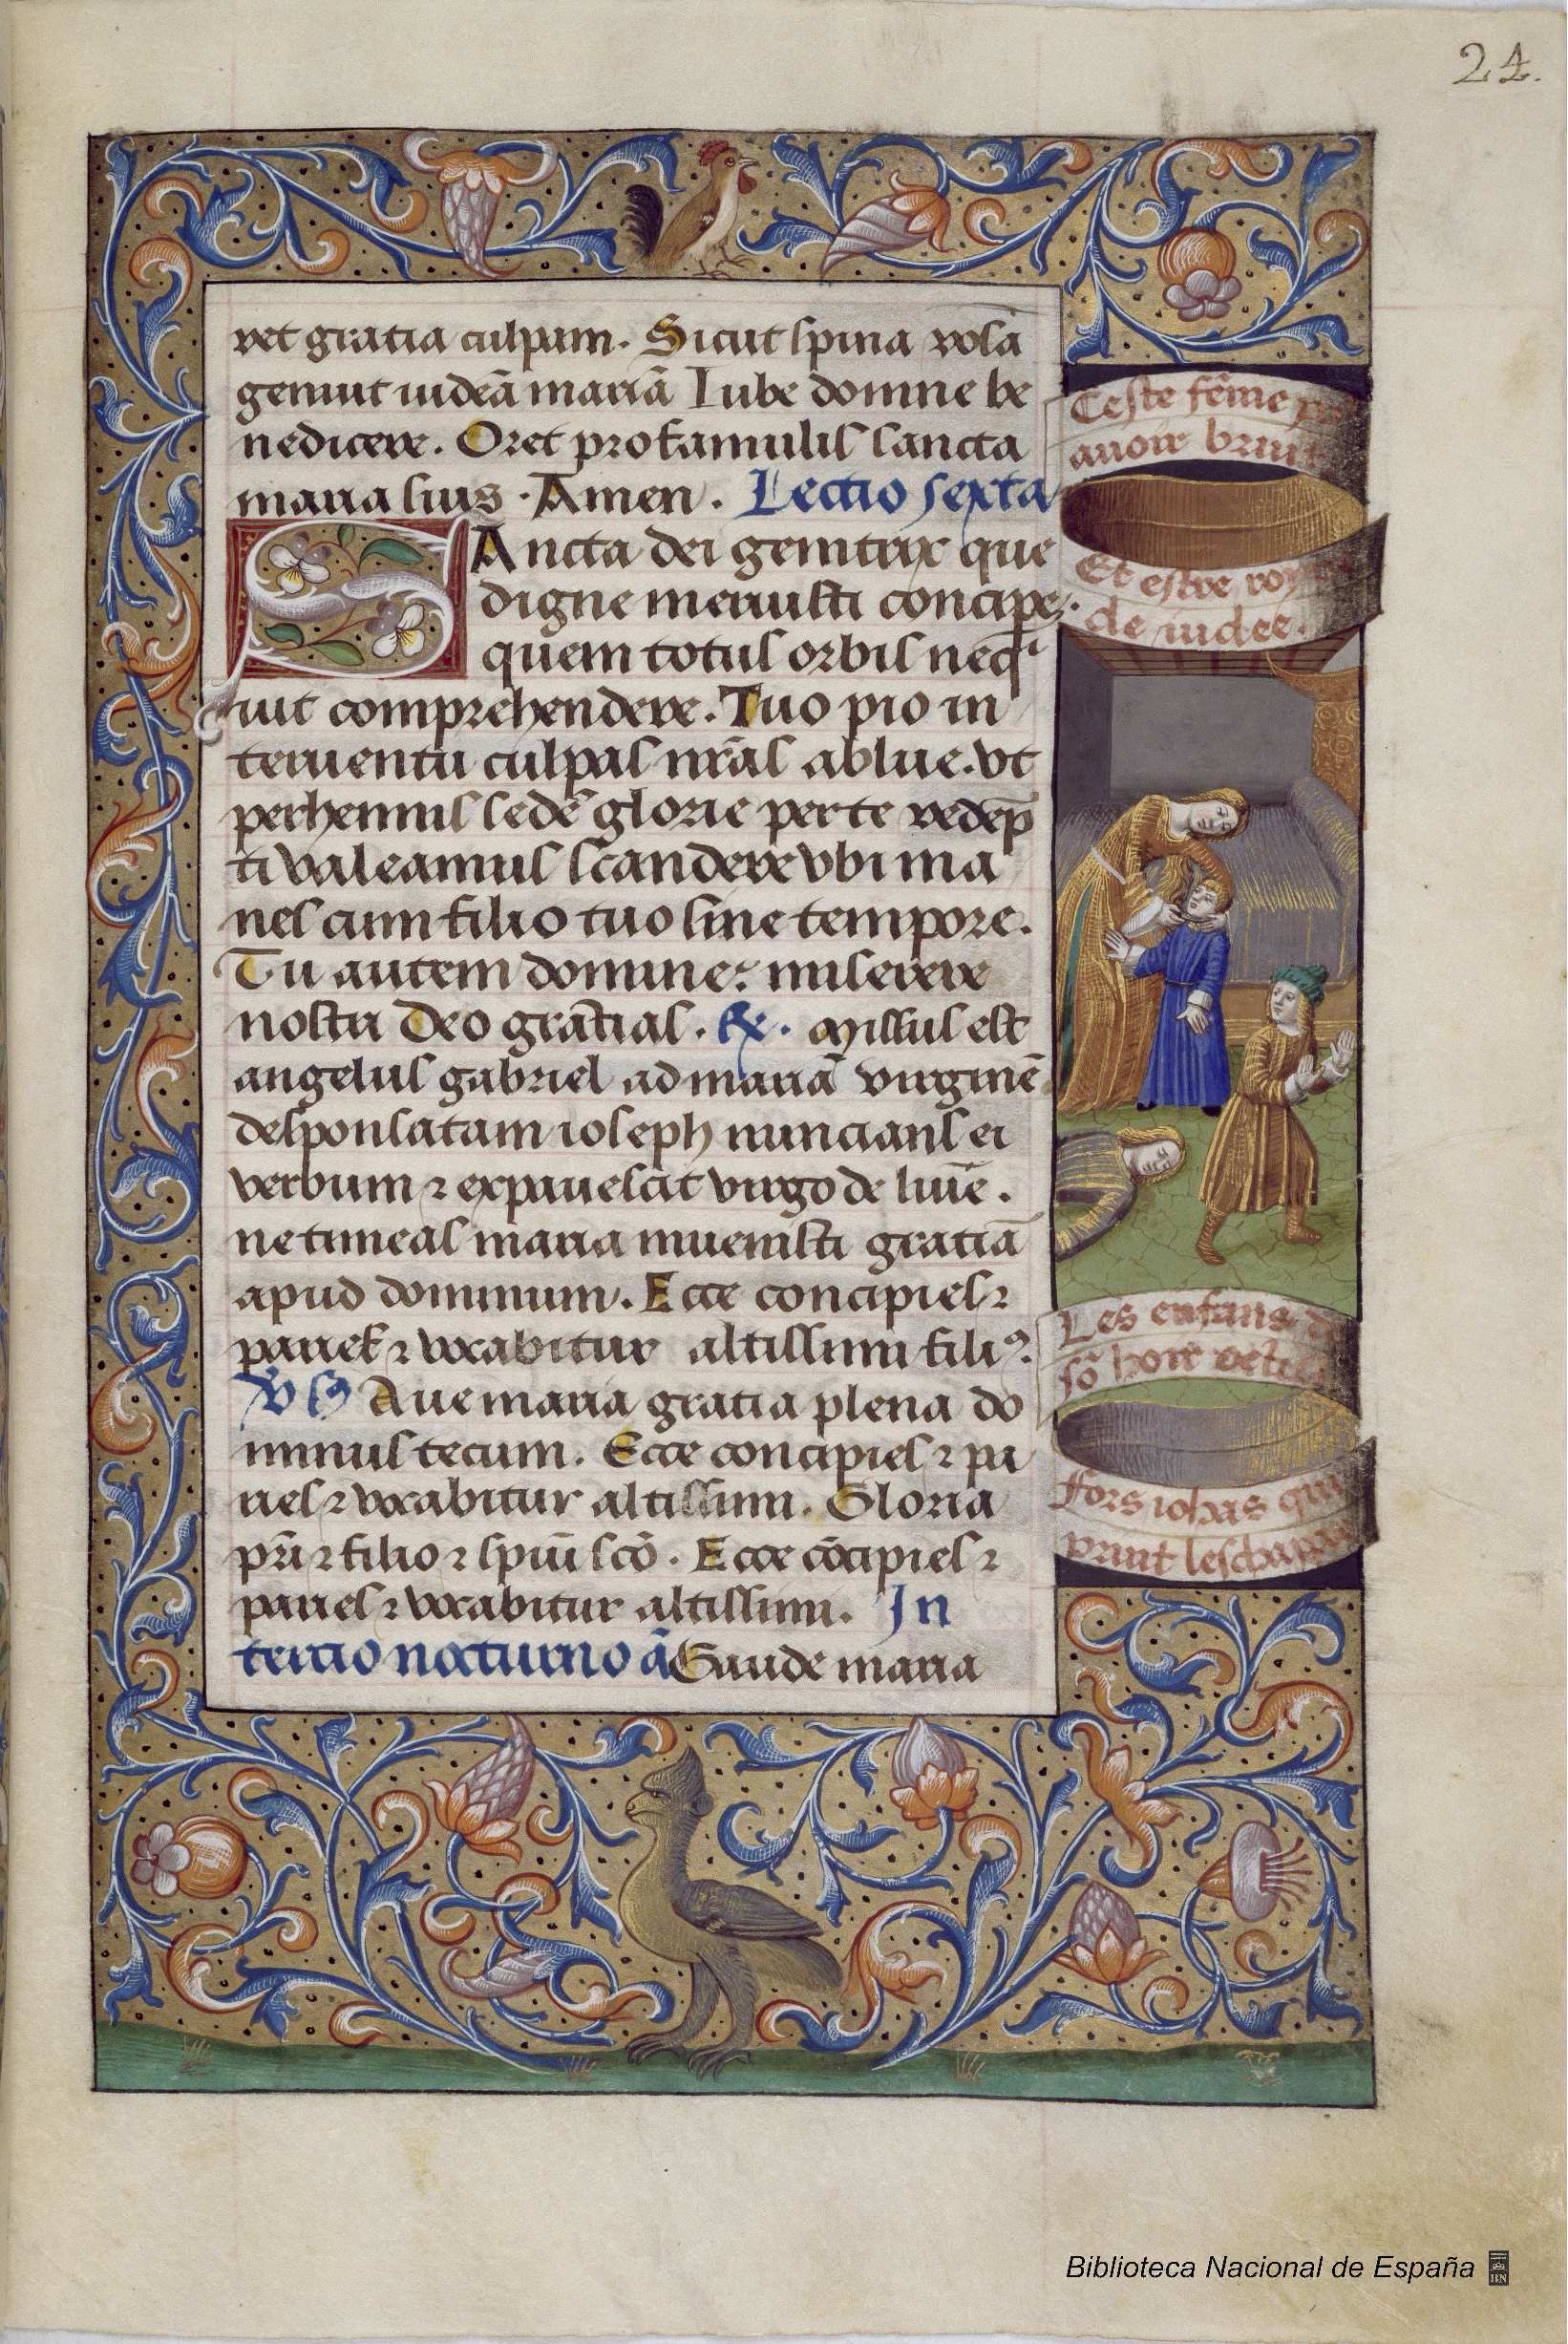 24.
ret gratia culpam. Sicut spina rosã
genuit iudeã mariã Iube domne be
nedicere. Oret pro famulis sancta
maria suis. Amen. Lectio sexta
SAncta dei genitrix que
digne meruisti concipe.
quem totus orbis neqͥ
uit comprehendere. Tuo pio in
teruentu culpas nr̃as ablue. vt
perhennis sedẽ glorie per te redep̃
ti valeamus scandere vbi ma
nes cum filio tuo sine tempore.
Tu autem domine: miserere
nostri Deo grat̃ias. ℟. Missus est
angelus gabriel ad mariã virginẽ
desponsatam ioseph nuncians ei
verbum ⁊ expauescit virgo de lumĩe.
ne timeas maria inuenisti gratiã
apud dominum. Ecce concipies ⁊
pariet ⁊ vocabitur altissimi filiꝰ.
Vs Aue maria gratia plena do
minus tecum. Ecce concipies ⁊ pa
ries ⁊ vocabitur altissimi. Gloria
pr̃i ⁊ filio ⁊ spũi scõ. Ecce cõcipies ⁊
paries ⁊ vocabitur altissimi. In
tercio nocturno ã Gaude maria
Ceste fẽme
auoir bruit
Et estre
de iudee.
Les enfans
sõ hoir
fors iohas qui
Biblioteca Nacional de España
BN